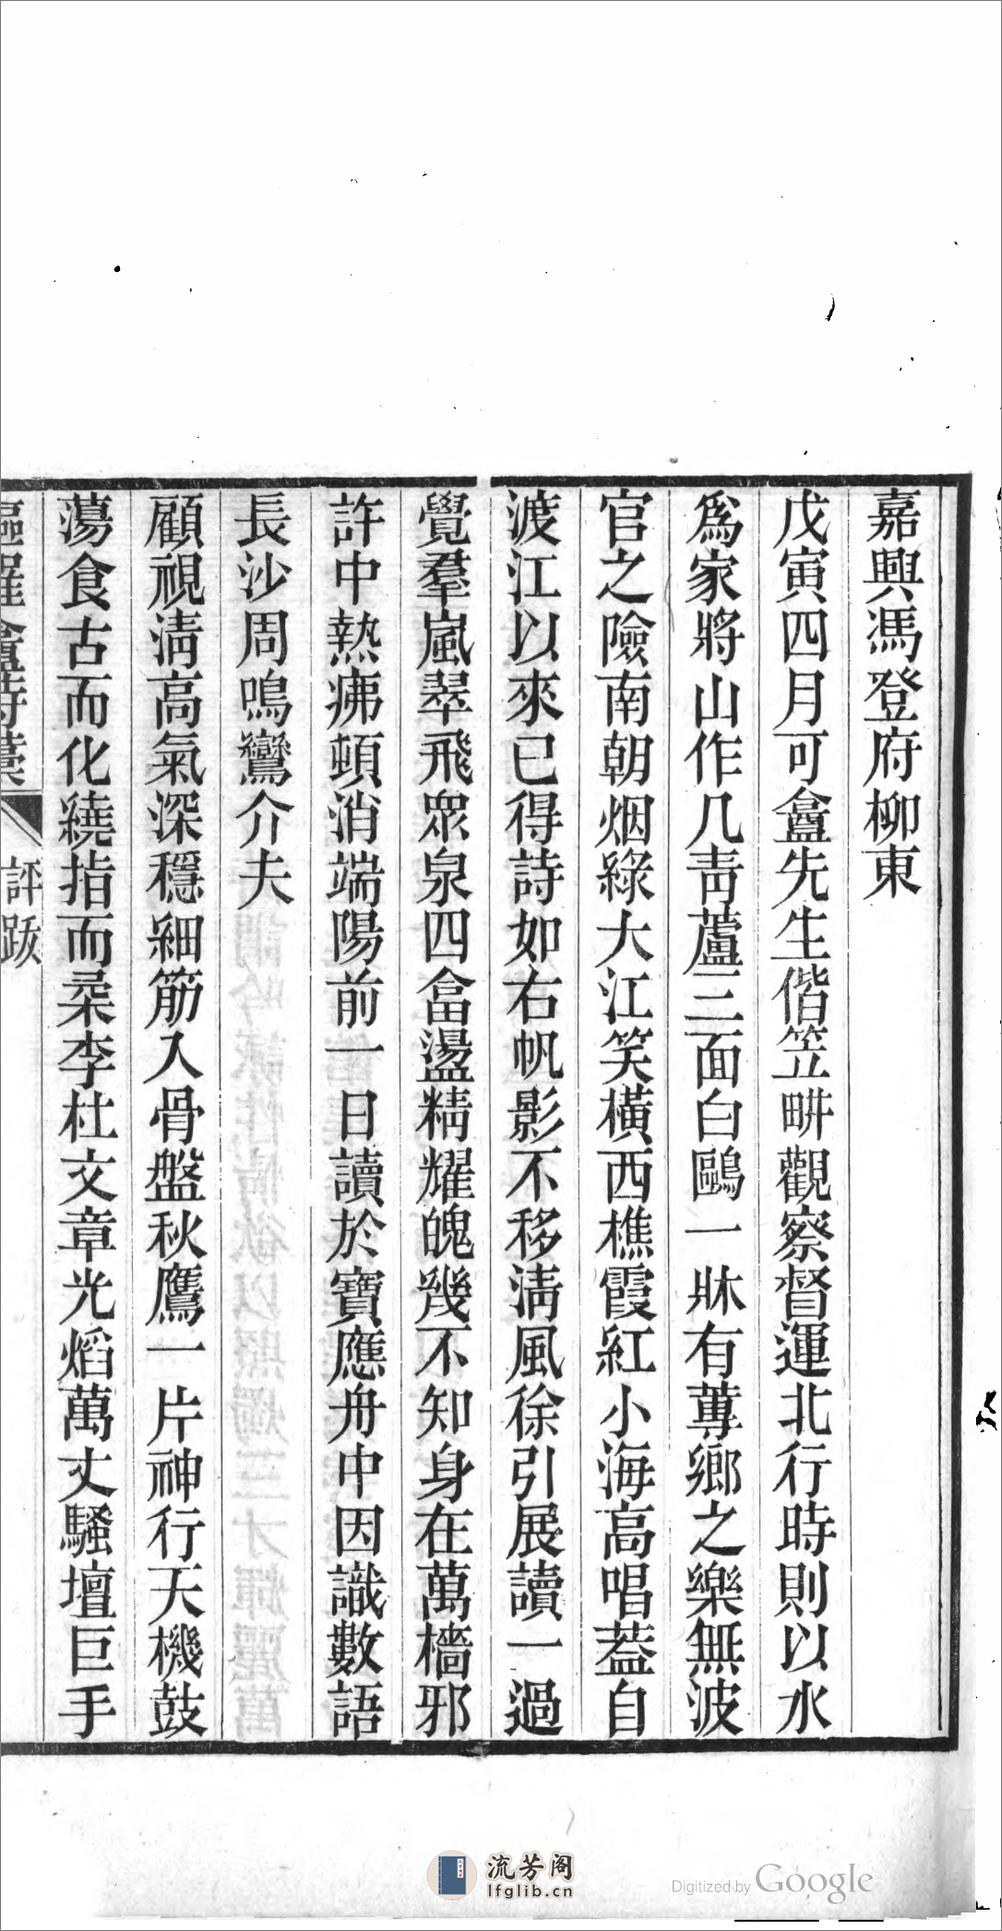 嘉興馮登府柳東
戊寅四月可盦先生偕笠畊觀察督運北行時則以水
爲家將山作几靑蘆三面白鷗一牀有蓴鄉之樂無波
官之險南朝烟綠大江笑橫西樵霞紅小海高唱葢自
渡江以來已得詩如右帆影不移淸風徐引展讀一過
覺羣嵐翠飛眾泉四畣盪精耀魄幾不知身在萬檣邪
許中熱疿頓消端陽前一日讀於寶應舟中因識數語
長沙周鳴鸞介夫
顧視淸高氣深穩細筋入骨盤秋鷹一片神行天機鼓
蕩食古而化繞指而柔李杜文章光焰萬丈騷壇巨手
盦詩
評跋
流芳阁
lfglib.cn
Digitized by Google